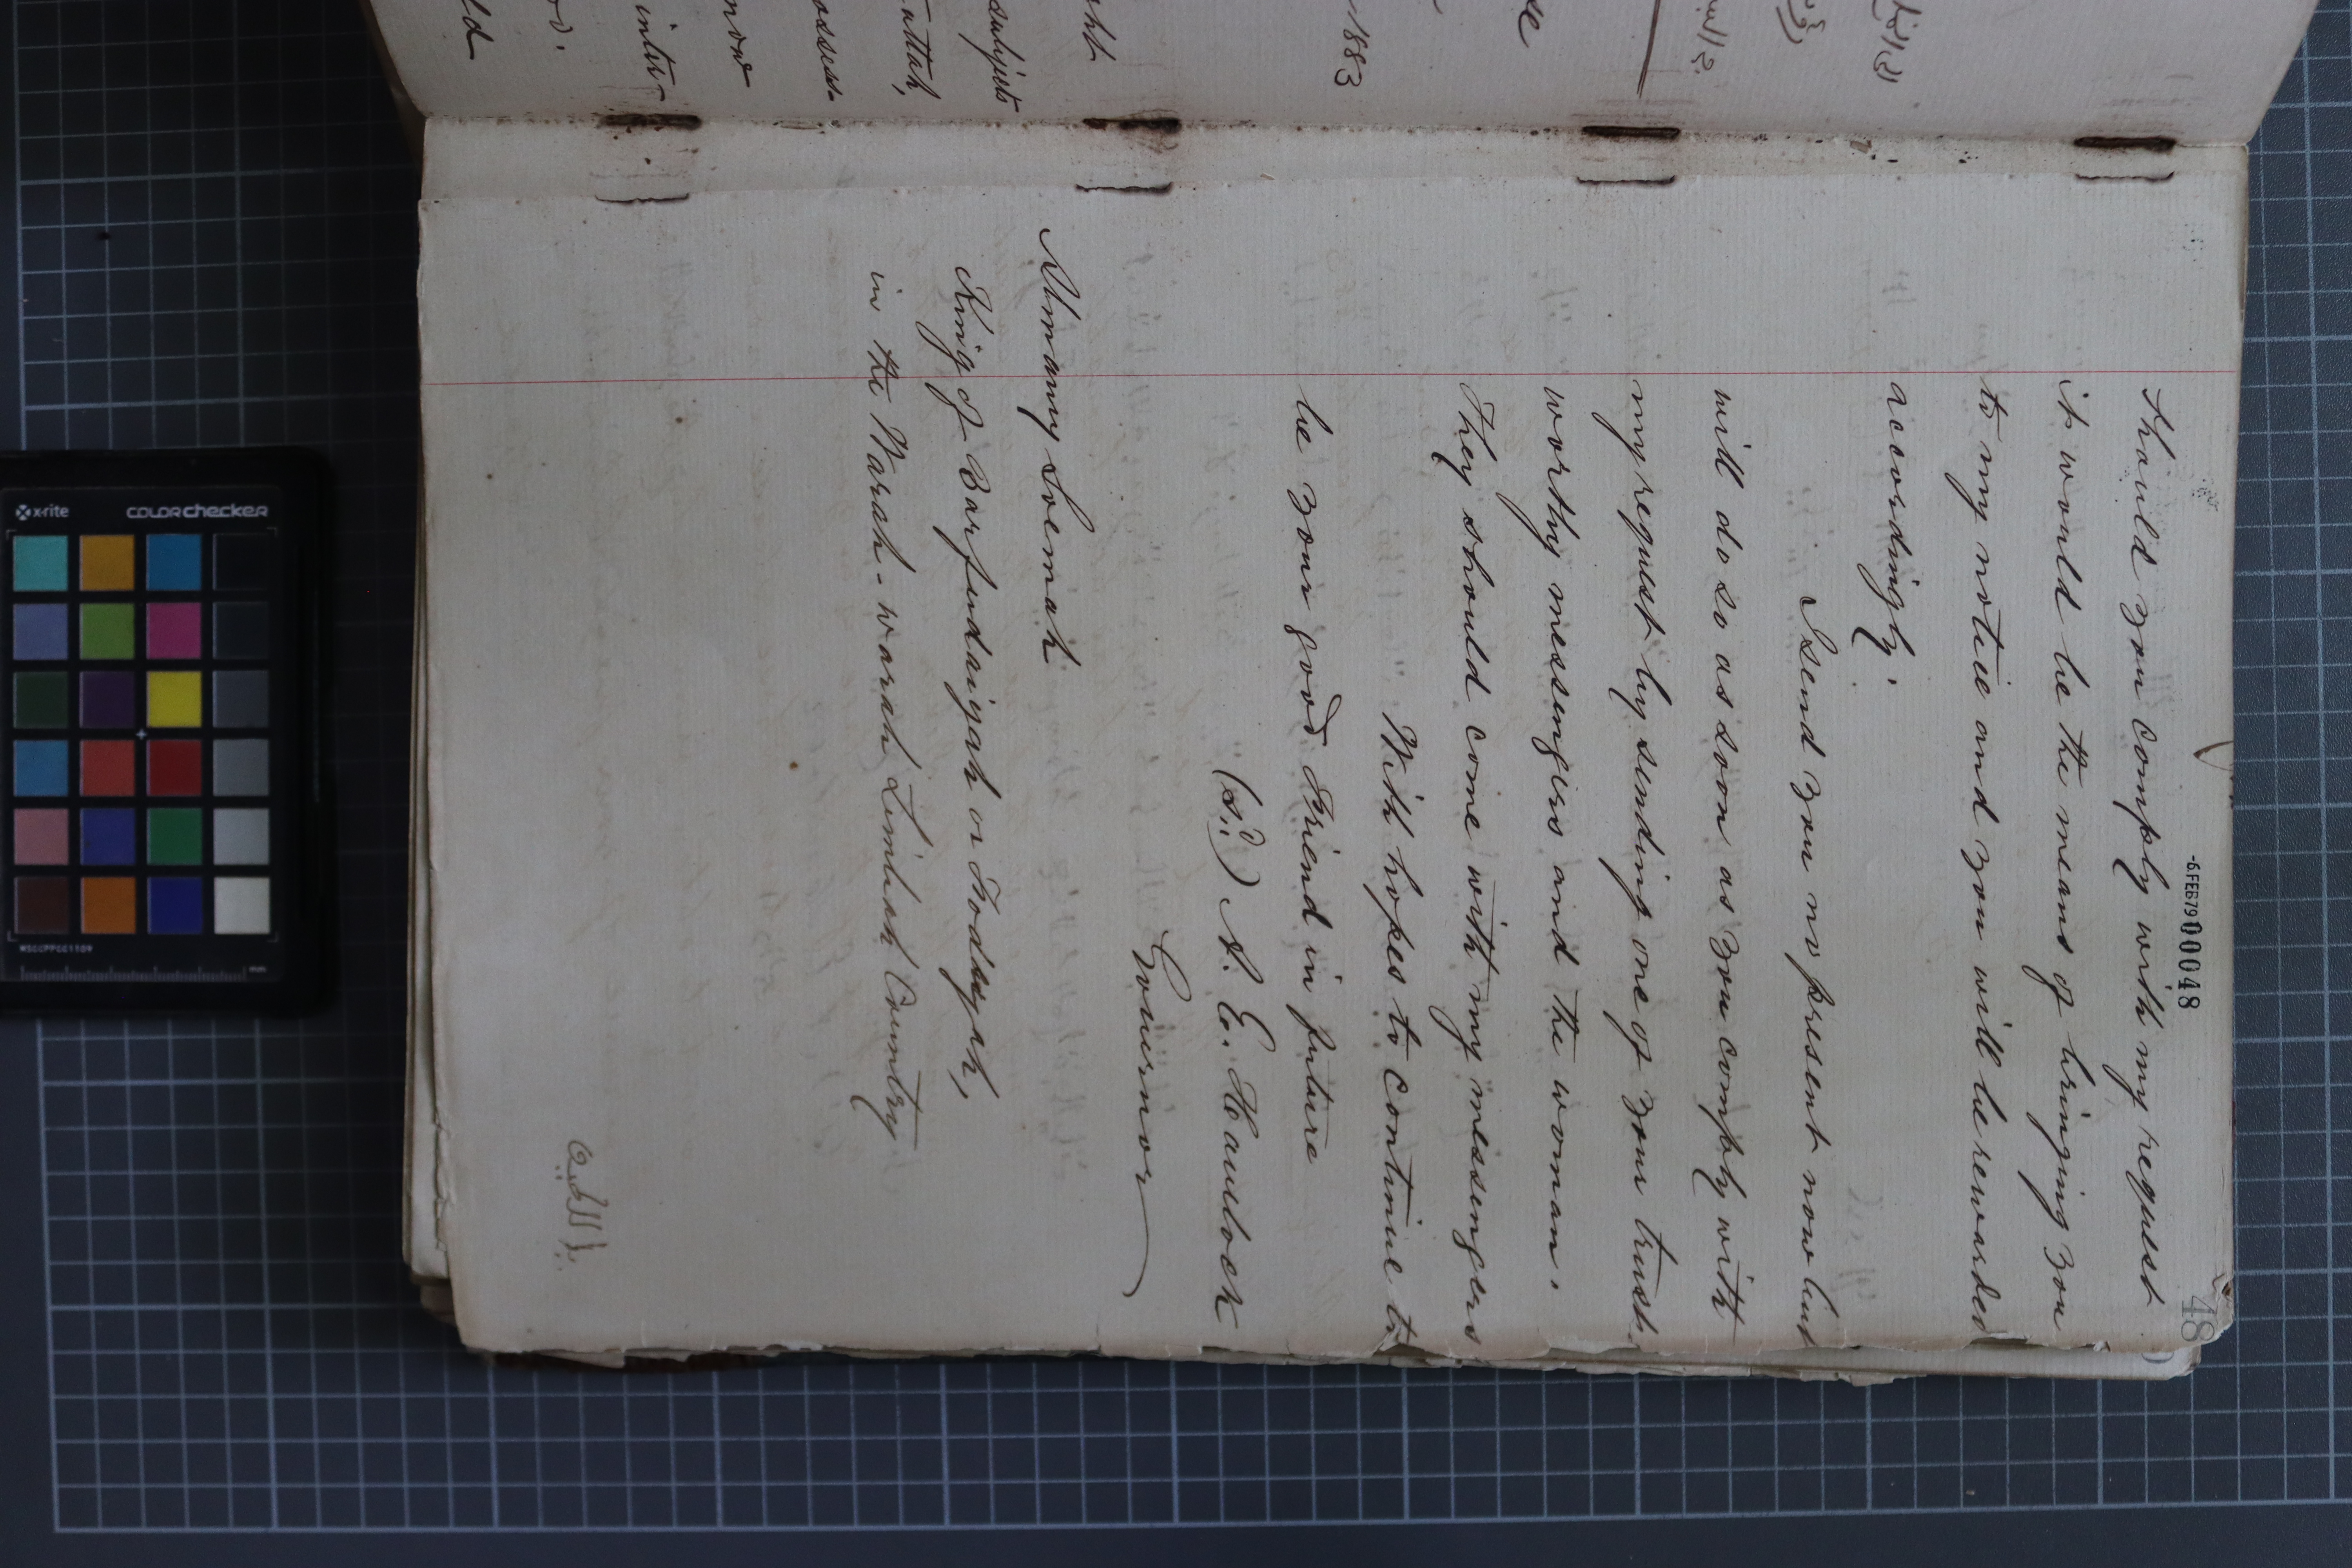 -6.FEB79 00048
48
should you comply with my request
it would be the means of bringing you
to my notice and you will be rewarded
accordingly.
I send you no present now but
will do so as soon as you comply with
my request by sending one of your trust-
worthy messengers and the woman.
They should come with my messengers
With hopes to continue to
be your good Friend in future
(sd) A. E. Havelock
Governor
Almamy Loemah
King of Barfendaigah or Fodayah,
in the Warah-warah Limbah Country
1883
se
ght
subjects
attah,
ossess-
now
inter-
ld
x-rite
COLORchecker
MSCCPPCC1109
mm